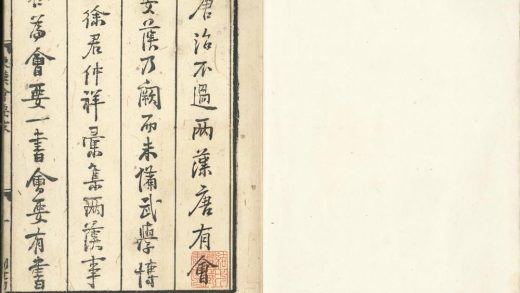 唐治不過兩漢唐有會
要漢乃闕而未備武學博
徐君仲祥彙集兩漢事
會要一書會要有書